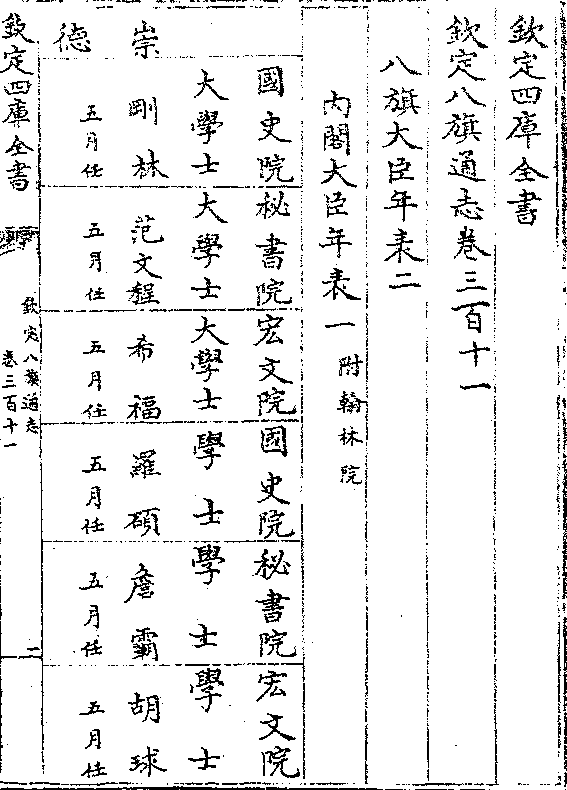 欽定四庫全書
欽定八旗通志卷三百十一
八旗大臣年表二
內閣大臣年表一 附翰林院
國史院 秘書院 宏文院 國史院 秘書院 宏文院
大學士 大學士 大學士 學士 學士 學士
崇德
剛林 范文程 希福 羅碩 詹霸 胡球
五月任 五月任 五月任 五月任 五月任 五月任
欽定四庫全書
欽定八旗通志
卷三百十一
二